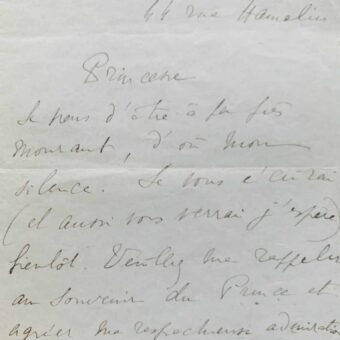 44 rue Hamelin
Princesse
Je viens d'être à peu près
mourant, d'où mon
silence. Je vous écrirai
(et aussi vous verrai j'espère)
bientôt. Veuillez me rappeler
au souvenir du Prince et
agréer ma respectueuse admiration